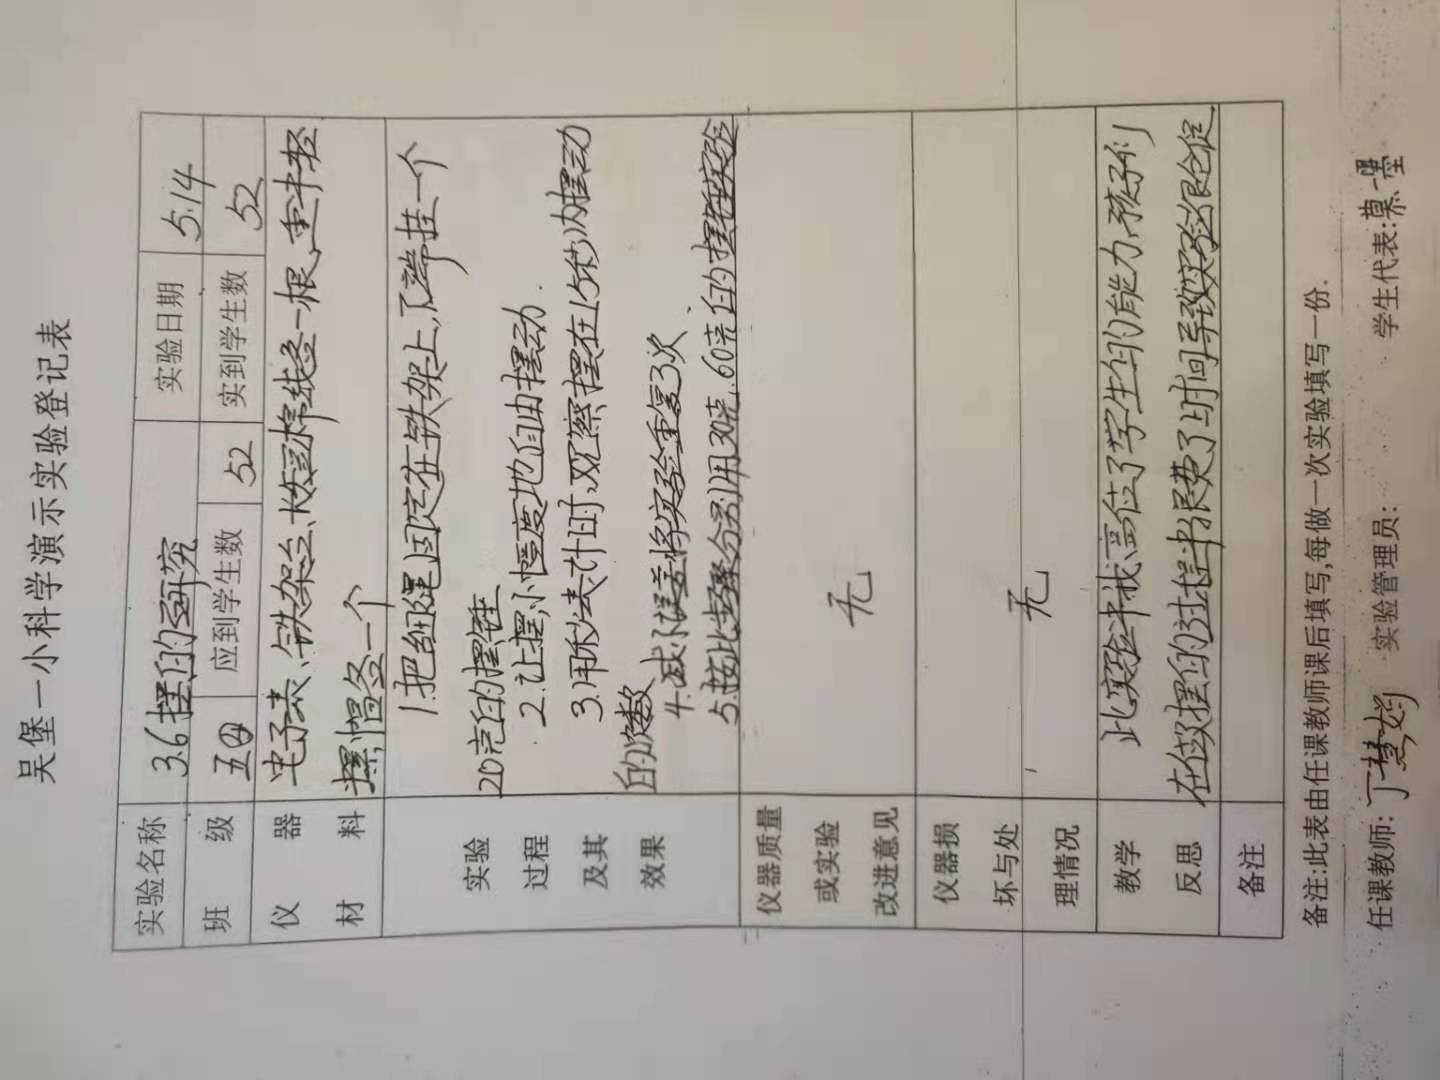 吴堡一小科学演示实验登记表
实验名称 3.6摆的研究 实验日期 5.14
班级 五④ 应到学生数 52 实到学生数 52
仪器 电子表、铁架台、长短棉线各一根、重中轻
材料 摆帽各一个
实验过程及其效果
1.把细绳固定在铁架上,下端挂一个
20克的摆锤
2.让摆小幅度地自由摆动.
3.用秒表计时,观察摆在15秒内摆动
的次数
4.减小误差将实验重复3次
5.按此步骤分别用30克、60克的摆锤实验
仪器质量或实验改进意见 无
仪器损坏与处理情况 无
教学 此实验中我高估了学生的能力,孩子们
反思 在做摆的过程中浪费了时间导致实验很仓促
备注
备注:此表由任课教师课后填写,每做一次实验填写一份.
任课教师:丁慧 实验管理员: 学生代表: